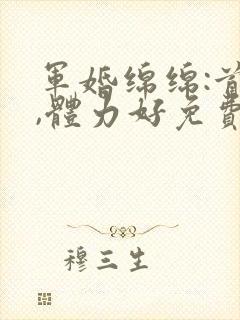 軍婚綿綿:首
,體力好免費
穆三生